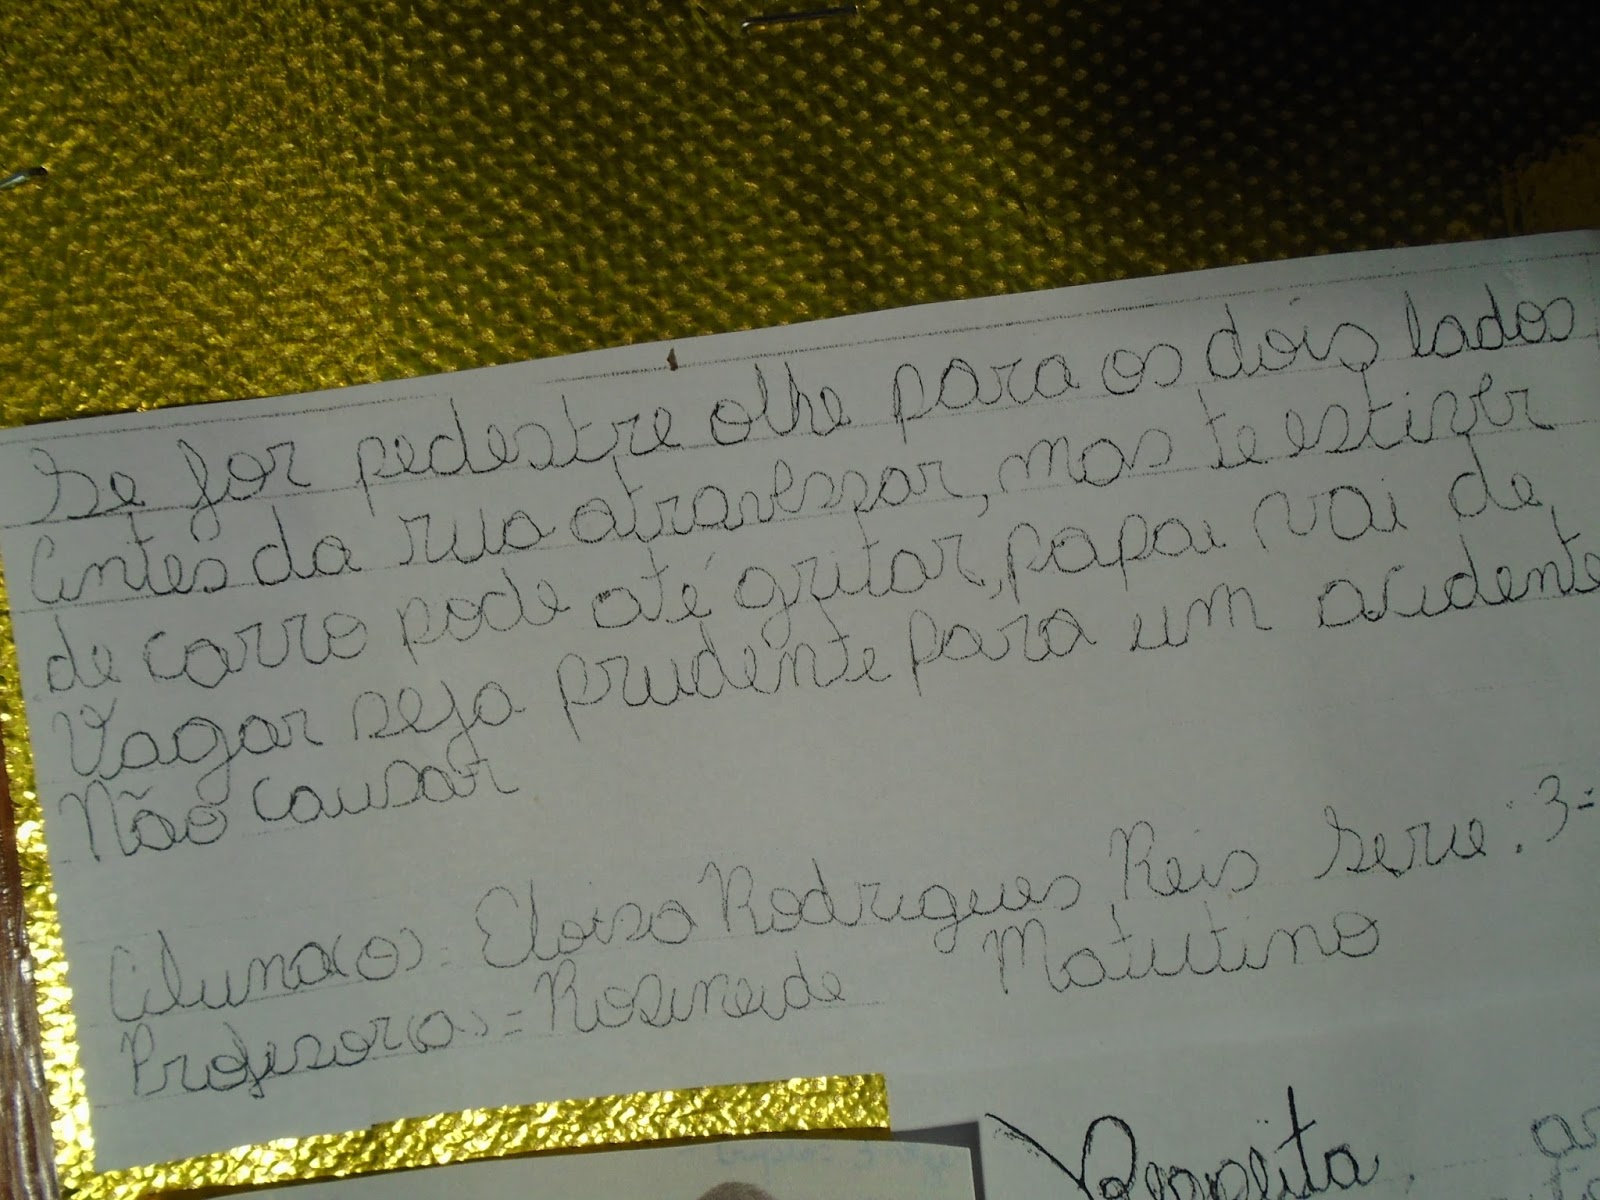 Se for pedestre olhe para os dois lados
Antes da rua atravessar, mas te estiver
de carro pode até gritar, papai vai de
Vagar seja prudente para um acidente
Não causar
Aluna(o) = Eloisa Rodrigues Reis Serie: 3=
Profesor(a) = Rosineide Matutino